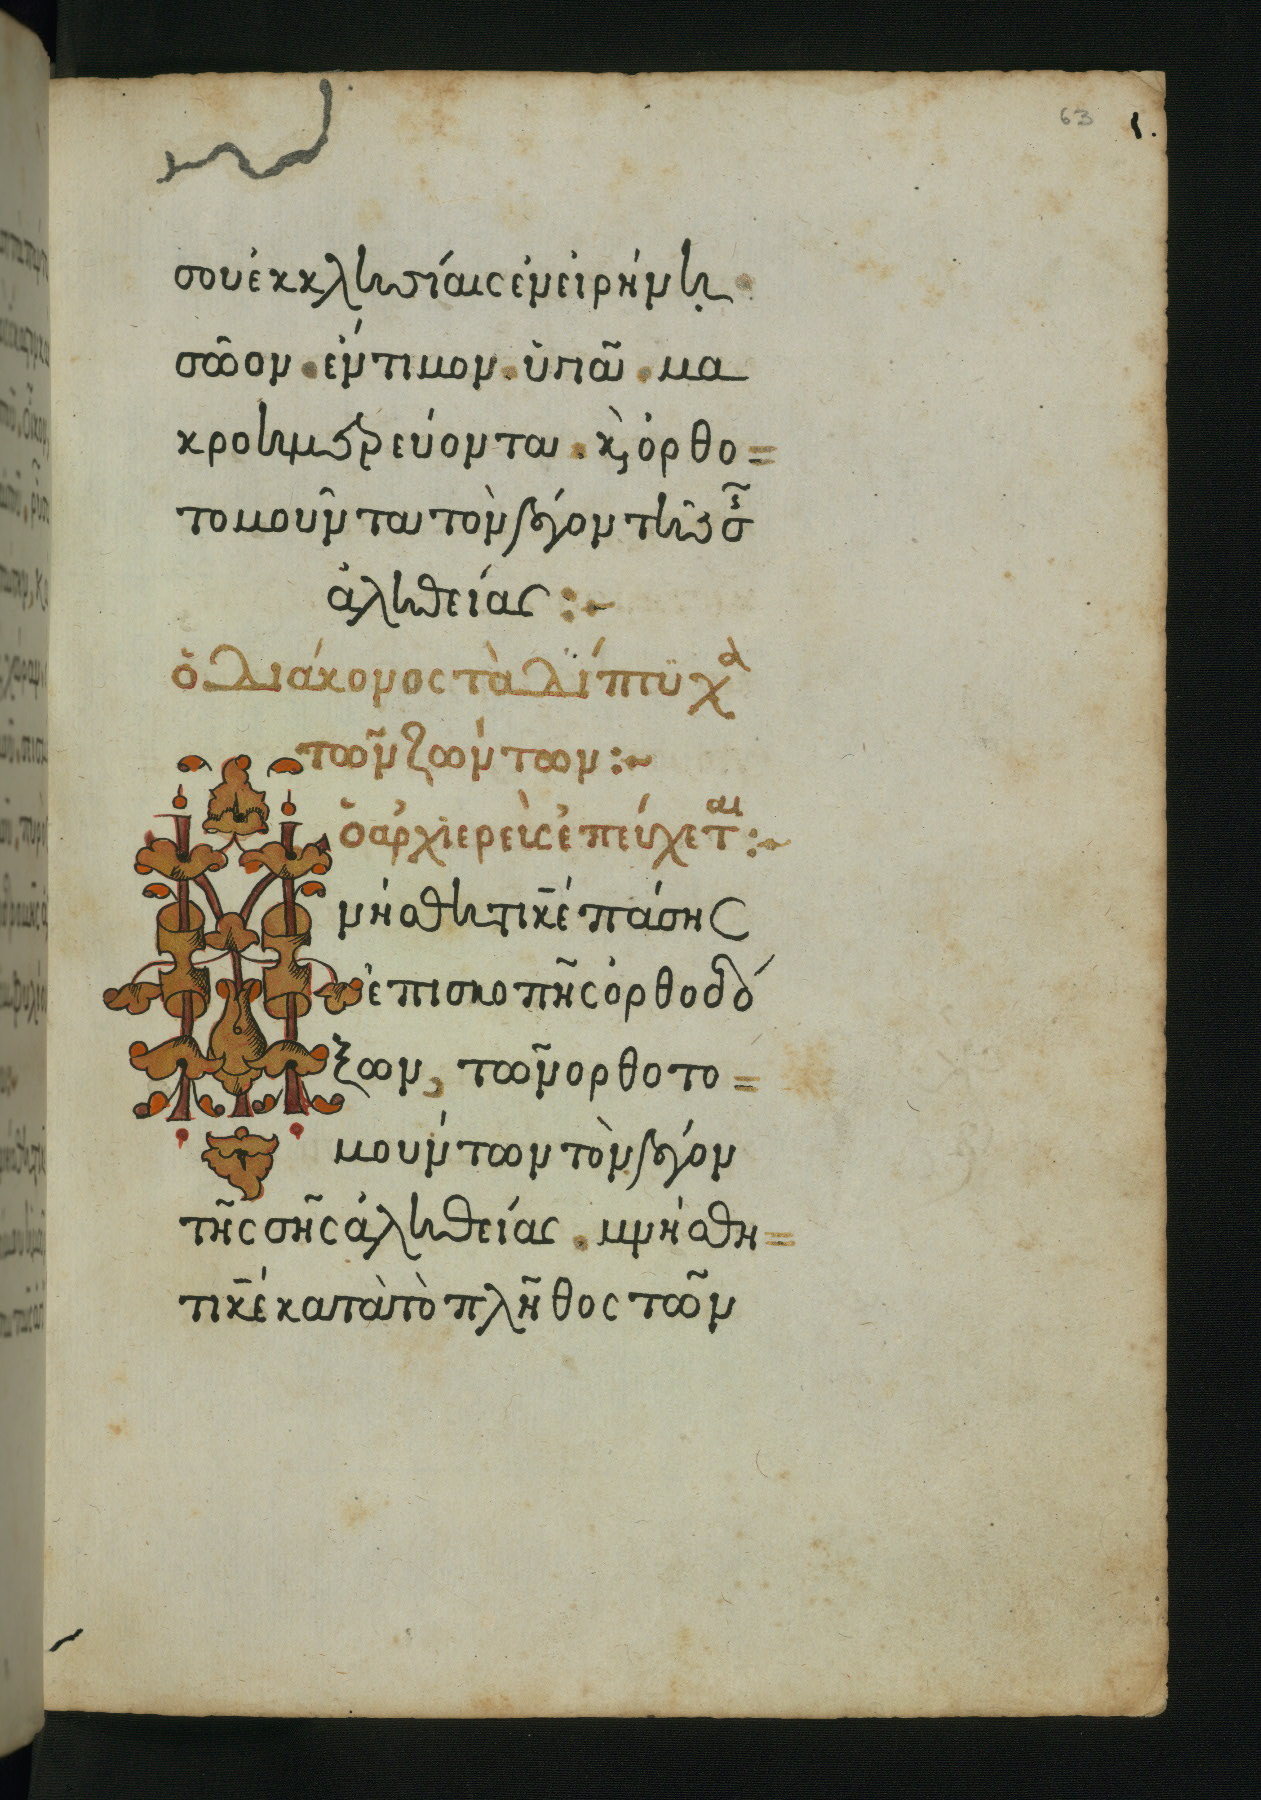 63
σου ἐκκλησίαις ἐν εἰρήνη.
σῶον. ἔντιμον. ὑγιᾶ. μα
κροημερεύοντα. κ, ὀρθο=
τομοῦντα τὸν λόγον τῆς σῆς
ἀληθείας :~
ὁ διάκονος τὰ δίπτυχα
τῶν ζώντων :~
ὁ ἀρχιερεὺς ἐπεύχεται :~
Μνήσθητι κ̅ε πάσης
ἐπισκοπῆς ὀρθοδό
ξων, τῶν ὀρθοτο=
μούντων τὸν λόγον
τῆς σῆς ἀληθείας. μνήσθη=
τι κ̅ε κατὰ τὸ πλῆθος τῶν